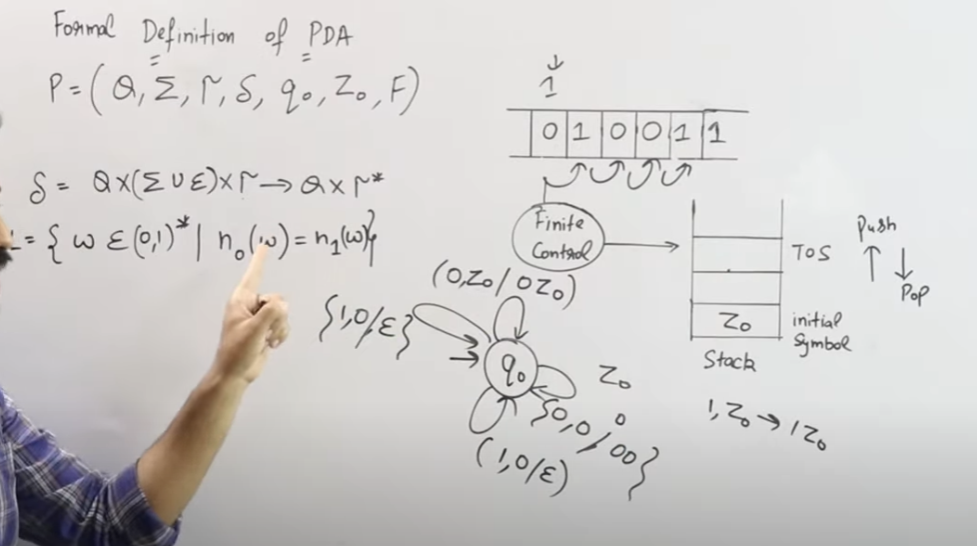 Formal Definition of PDA
P = (Q, Σ, Γ, δ, q₀, Z₀, F)
δ = Q×(Σ∪ε)×Γ→Q×Γ*
L = { ω ε (0,1)* | n₀(ω) = n₁(ω)}
1
0 1 0 0 1 1
Finite
Control
TOS
Z₀
initial
Symbol
Stack
Push
Pop
(0,Z₀/0Z₀)
{1,0/ε}
q₀
Z₀
0
{0,0/00}
(1,0/ε)
1,Z₀→1Z₀